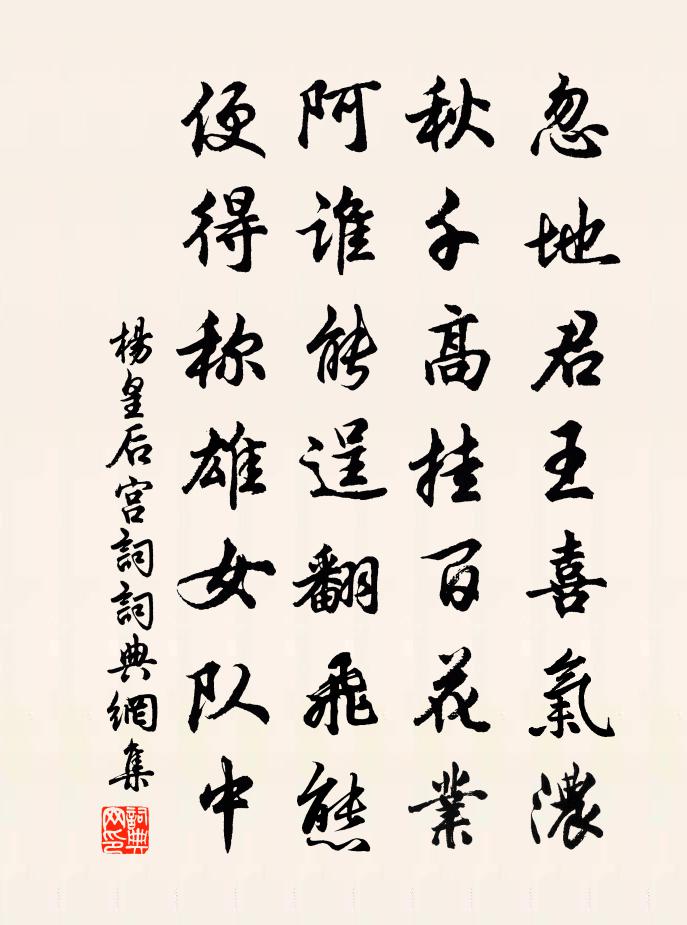 忽地君王喜氣濃
秋千髙挂百花業
阿谁能逞翻飛態
便得称雄女队中
楊皇后宫詞詞典網集
詞典
网印